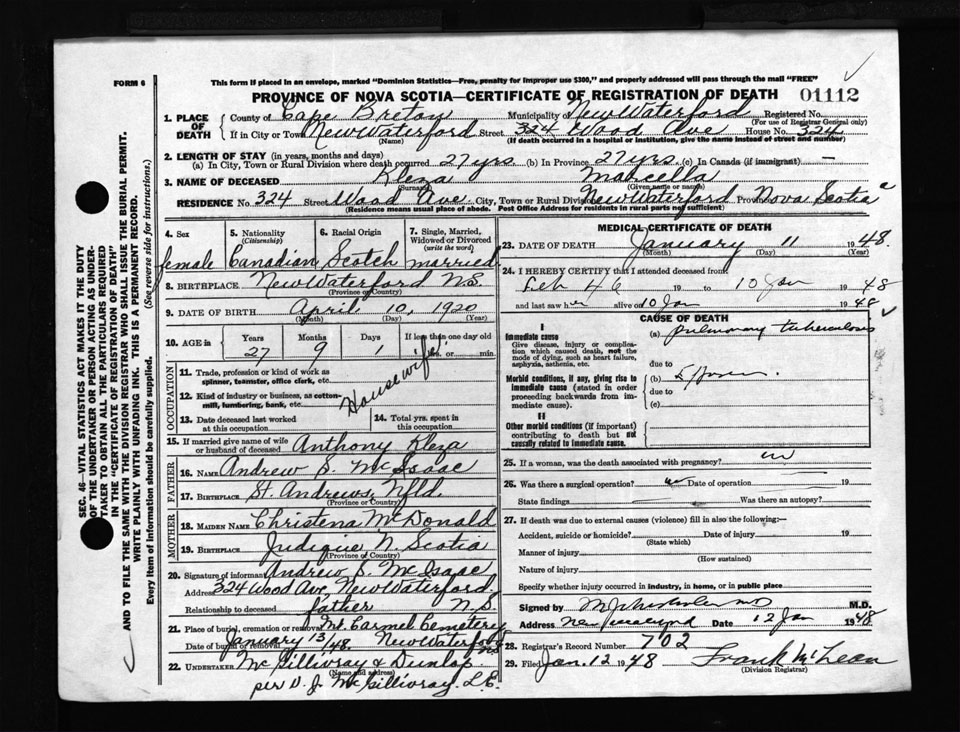 FORM 6
This form if placed in an envelope, marked "Dominion Statistics—Free, penalty for improper use $300," and properly addressed will pass through the mail "FREE"
PROVINCE OF NOVA SCOTIA—CERTIFICATE OF REGISTRATION OF DEATH 01112
1. PLACE OF DEATH
County of Cape Breton Municipality of New Waterford Registered No.
(For use of Registrar General only)
If in City or Town New Waterford Street 324 Wood Ave House No. 324
(Name) (If death occurred in a hospital or institution, give the name instead of street and number)
2. LENGTH OF STAY (in years, months and days)
(a) In City, Town or Rural Division where death occurred 27 yrs (b) In Province 27 yrs. (c) In Canada (if immigrant) —
3. NAME OF DECEASED Kleza Marcella
(Surname) (Given name or names)
RESIDENCE No. 324 Street Wood Ave City, Town or Rural Division New Waterford Province Nova Scotia
(Residence means usual place of abode. Post Office Address for residents in rural parts not sufficient)
4. Sex
female
5. Nationality
(Citizenship)
Canadian
6. Racial Origin
Scotch
7. Single, Married, Widowed or Divorced
(write the word)
married
8. BIRTHPLACE New Waterford N.S.
(Province or Country)
9. DATE OF BIRTH April 10, 1920
(Month) (Day) (Year)
10. AGE in
Years Months Days If less than one day old
27 9 1 hrs. or min.
OCCUPATION
11. Trade, profession or kind of work as
spinner, teamster, office clerk, etc.
Housewife
12. Kind of industry or business, as cotton-
mill, lumbering, bank, etc.
13. Date deceased last worked
at this occupation
14. Total yrs. spent in
this occupation
15. If married give name of wife
or husband of deceased Anthony Kleza
FATHER
16. NAME Andrew S. McIsaac
17. BIRTHPLACE St. Andrews, Nfld.
(Province or Country)
MOTHER
18. MAIDEN NAME Christena McDonald
19. BIRTHPLACE Judique N. Scotia
(Province or Country)
20. Signature of informant Andrew S. McIsaac
Address 324 Wood Ave, New Waterford.
Relationship to deceased father N.S.
21. Place of burial, cremation or removal Mt. Carmel Cemetery
Date of burial or removal January 13/48. New Waterford N.S.
22. UNDERTAKER McGillivray & Dunlop
(Name and address)
per D. J. McGillivray. L.E.
MEDICAL CERTIFICATE OF DEATH
23. DATE OF DEATH January 11 1948.
(Month) (Day) (Year)
24. I HEREBY CERTIFY that I attended deceased from
Feb 46 19 to 10 Jan 1948
and last saw her alive on 10 Jan 1948
CAUSE OF DEATH
I
Immediate cause
Give disease, injury or complica-
tion which caused death, not the
mode of dying, such as heart failure,
asphyxia, asthenia, etc.
(a) pulmonary tuberculosis
due to
Morbid conditions, if any, giving rise to
immediate cause (stated in order
proceeding backwards from im-
mediate cause).
(b)
due to
(c)
II
Other morbid conditions (if important)
contributing to death but not
causally related to immediate cause.
25. If a woman, was the death associated with pregnancy?
26. Was there a surgical operation? Date of operation 19
State findings Was there an autopsy?
27. If death was due to external causes (violence) fill in also the following:—
Accident, suicide or homicide? Date of injury 19
(State which)
Manner of injury
(How sustained)
Nature of injury
Specify whether injury occurred in industry, in home, or in public place
Signed by M.D.
Address New Waterford Date 12 Jan 1948
28. Registrar's Record Number 702
29. Filed Jan. 12 1948 Frank McLean
(Division Registrar)
SEC. 46—VITAL STATISTICS ACT MAKES IT THE DUTY
OF THE UNDERTAKER OR PERSON ACTING AS UNDER-
TAKER TO OBTAIN ALL THE PARTICULARS REQUIRED
IN THE "CERTIFICATE OF REGISTRATION OF DEATH"
AND TO FILE THE SAME WITH THE DIVISION REGISTRAR WHO SHALL ISSUE THE BURIAL PERMIT.
WRITE PLAINLY WITH UNFADING INK. THIS IS A PERMANENT RECORD.
Every item of information should be carefully supplied. (See reverse side for instructions.)